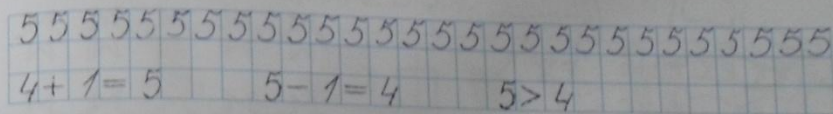 5 5 5 5 5 5 5 5 5 5 5 5 5 5 5 5 5 5 5 5 5 5 5 5 5 5 5 5
4 + 1 = 5 5 - 1 = 4 5 > 4